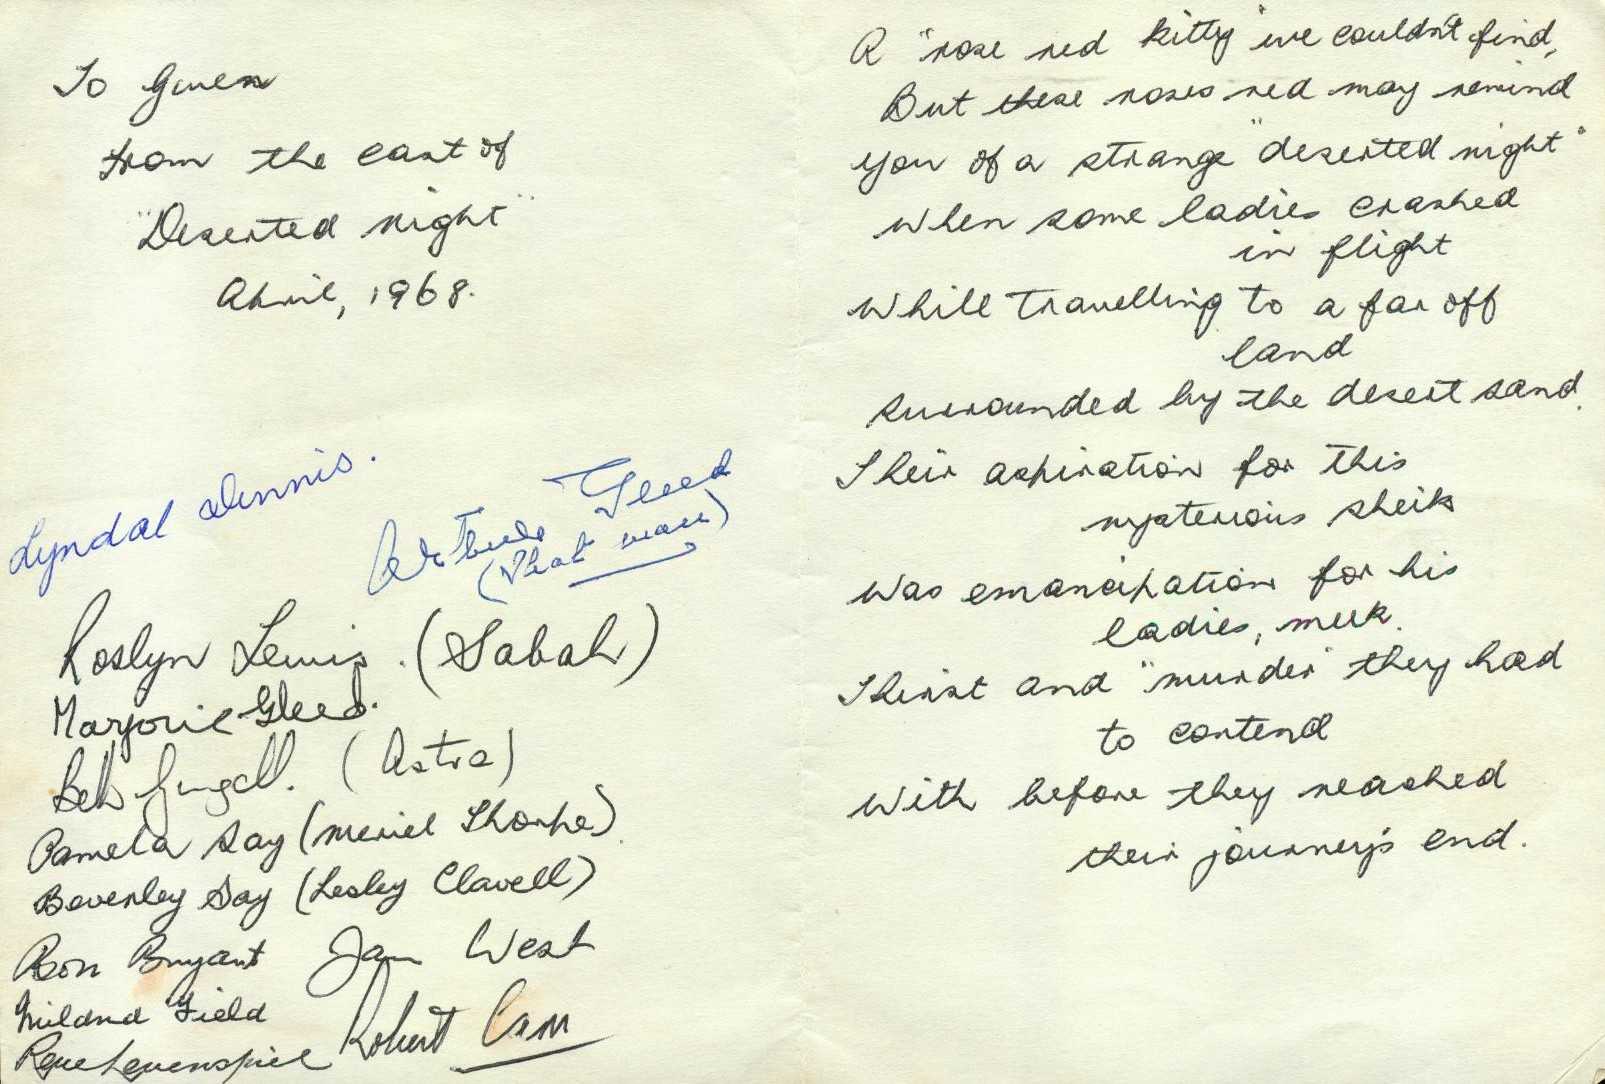 To Gwen
from the cast of
"Deserted night"
April, 1968.
Lyndal Dennis.
Gleed
(That man)
Roslyn Lewis. (Sabah)
Marjorie Gleed.
Beth (Astra)
Pamela Say (Meriel Thorpe)
Beverley Say (Lesley Clavell)
Ron Bryant Jan West
Mildred Field
Robert Cam
A "rose red kitty" we couldn't find,
But these roses red may remind
you of a strange "deserted night"
when some ladies crashed
in flight
while travelling to a far off
land
surrounded by the desert sand.
Their aspiration for this
mysterious sheik
was emancipation for his
ladies, meek.
Thirst and "murder" they had
to contend
with before they reached
their journey's end.